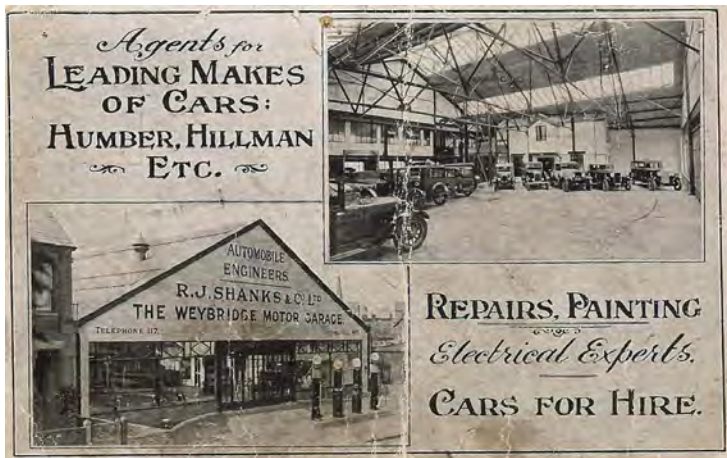 Agents for
LEADING MAKES
OF CARS:
HUMBER, HILLMAN
ETC.
AUTOMOBILE
ENGINEERS
R.J. SHANKS & Co. LTD
THE WEYBRIDGE MOTOR GARAGE.
TELEPHONE 117.
REPAIRS, PAINTING
Electrical Experts.
CARS FOR HIRE.